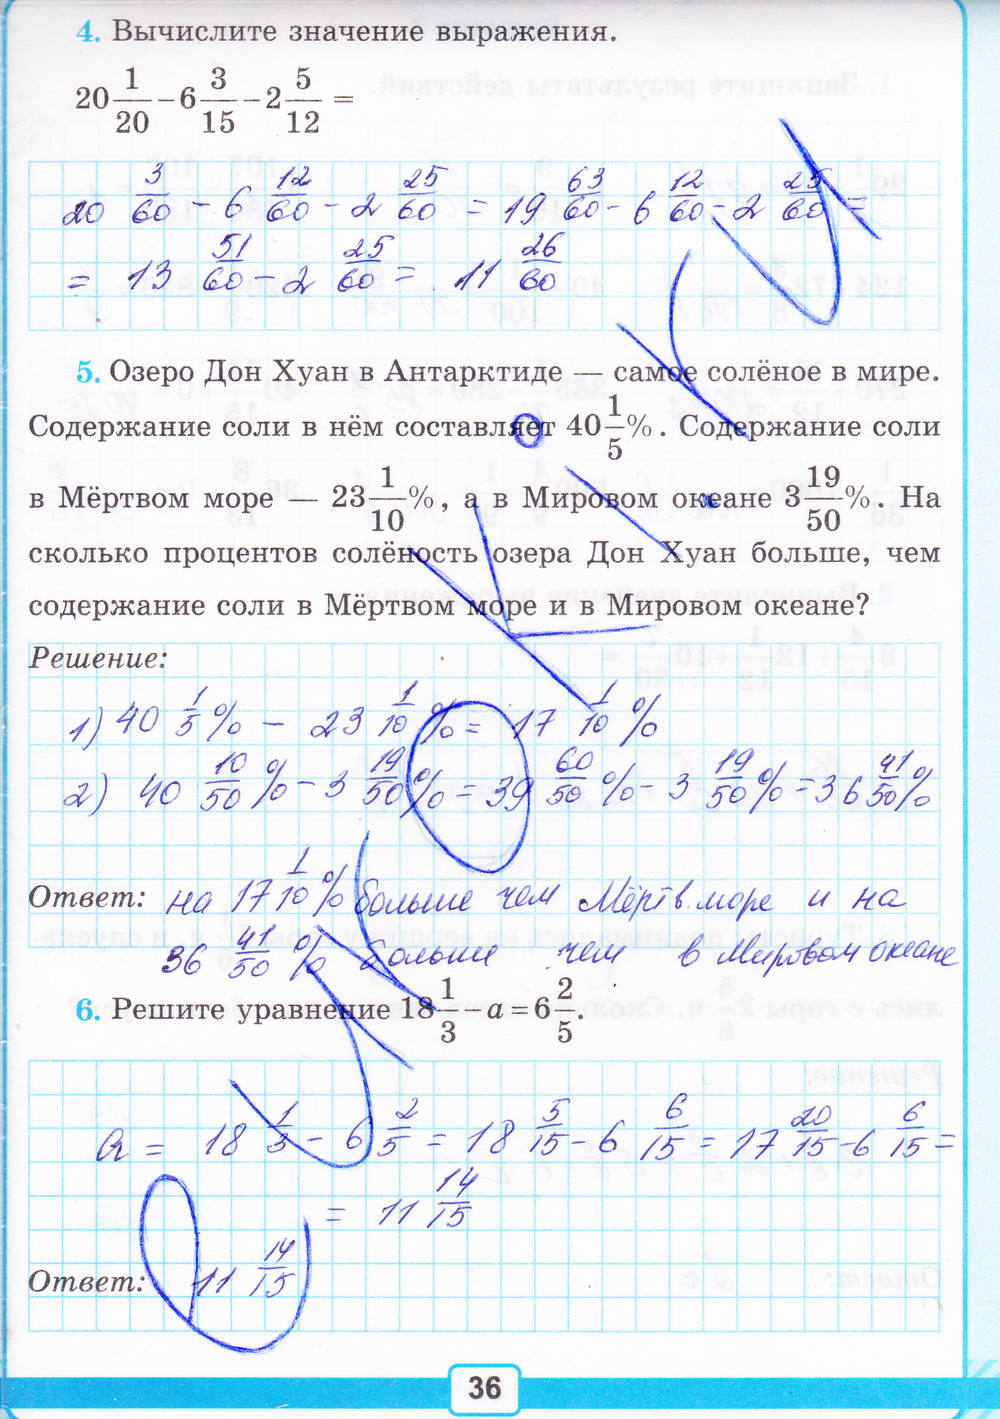 4. Вычислите значение выражения.
20 1/20 − 6 3/15 − 2 5/12 =
20 3/60 − 6 12/60 − 2 25/60 = 19 63/60 − 6 12/60 − 2 25/60 =
= 13 51/60 − 2 25/60 = 11 26/60
5. Озеро Дон Хуан в Антарктиде — самое солёное в мире.
Содержание соли в нём составляет 40 1/5 %. Содержание соли
в Мёртвом море — 23 1/10 %, а в Мировом океане 3 19/50 %. На
сколько процентов солёность озера Дон Хуан больше, чем
содержание соли в Мёртвом море и в Мировом океане?
Решение:
1) 40 1/5 % − 23 1/10 % = 17 1/10 %
2) 40 10/50 % − 3 19/50 % = 39 60/50 % − 3 19/50 % = 36 41/50 %
Ответ: на 17 1/10 % больше чем Мёртв. море и на
36 41/50 % больше чем в Мировом океане
6. Решите уравнение 18 1/3 − a = 6 2/5.
a = 18 1/3 − 6 2/5 = 18 5/15 − 6 6/15 = 17 20/15 − 6 6/15 =
= 11 14/15
Ответ: 11 14/15
36